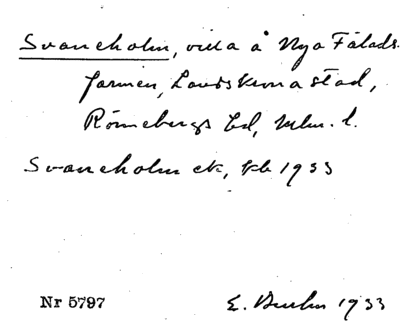 Svaneholm, villa å Nya Fálads-
farmen, Landskrona stad,
Rönnebergs hd, Mlm. l.
Svaneholm ek, kb 1933
Nr 5797
E. 1933